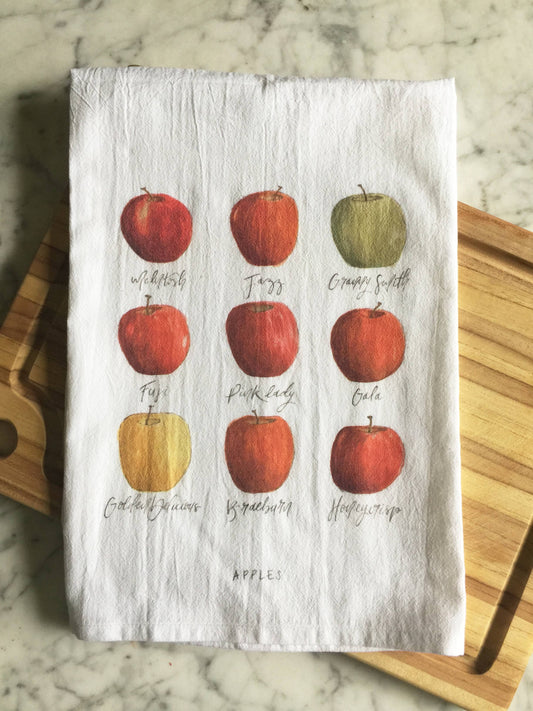 McIntosh Jazz Granny Smith
Fuji Pink lady Gala
Golden Delicious Braeburn Honeycrisp
APPLES